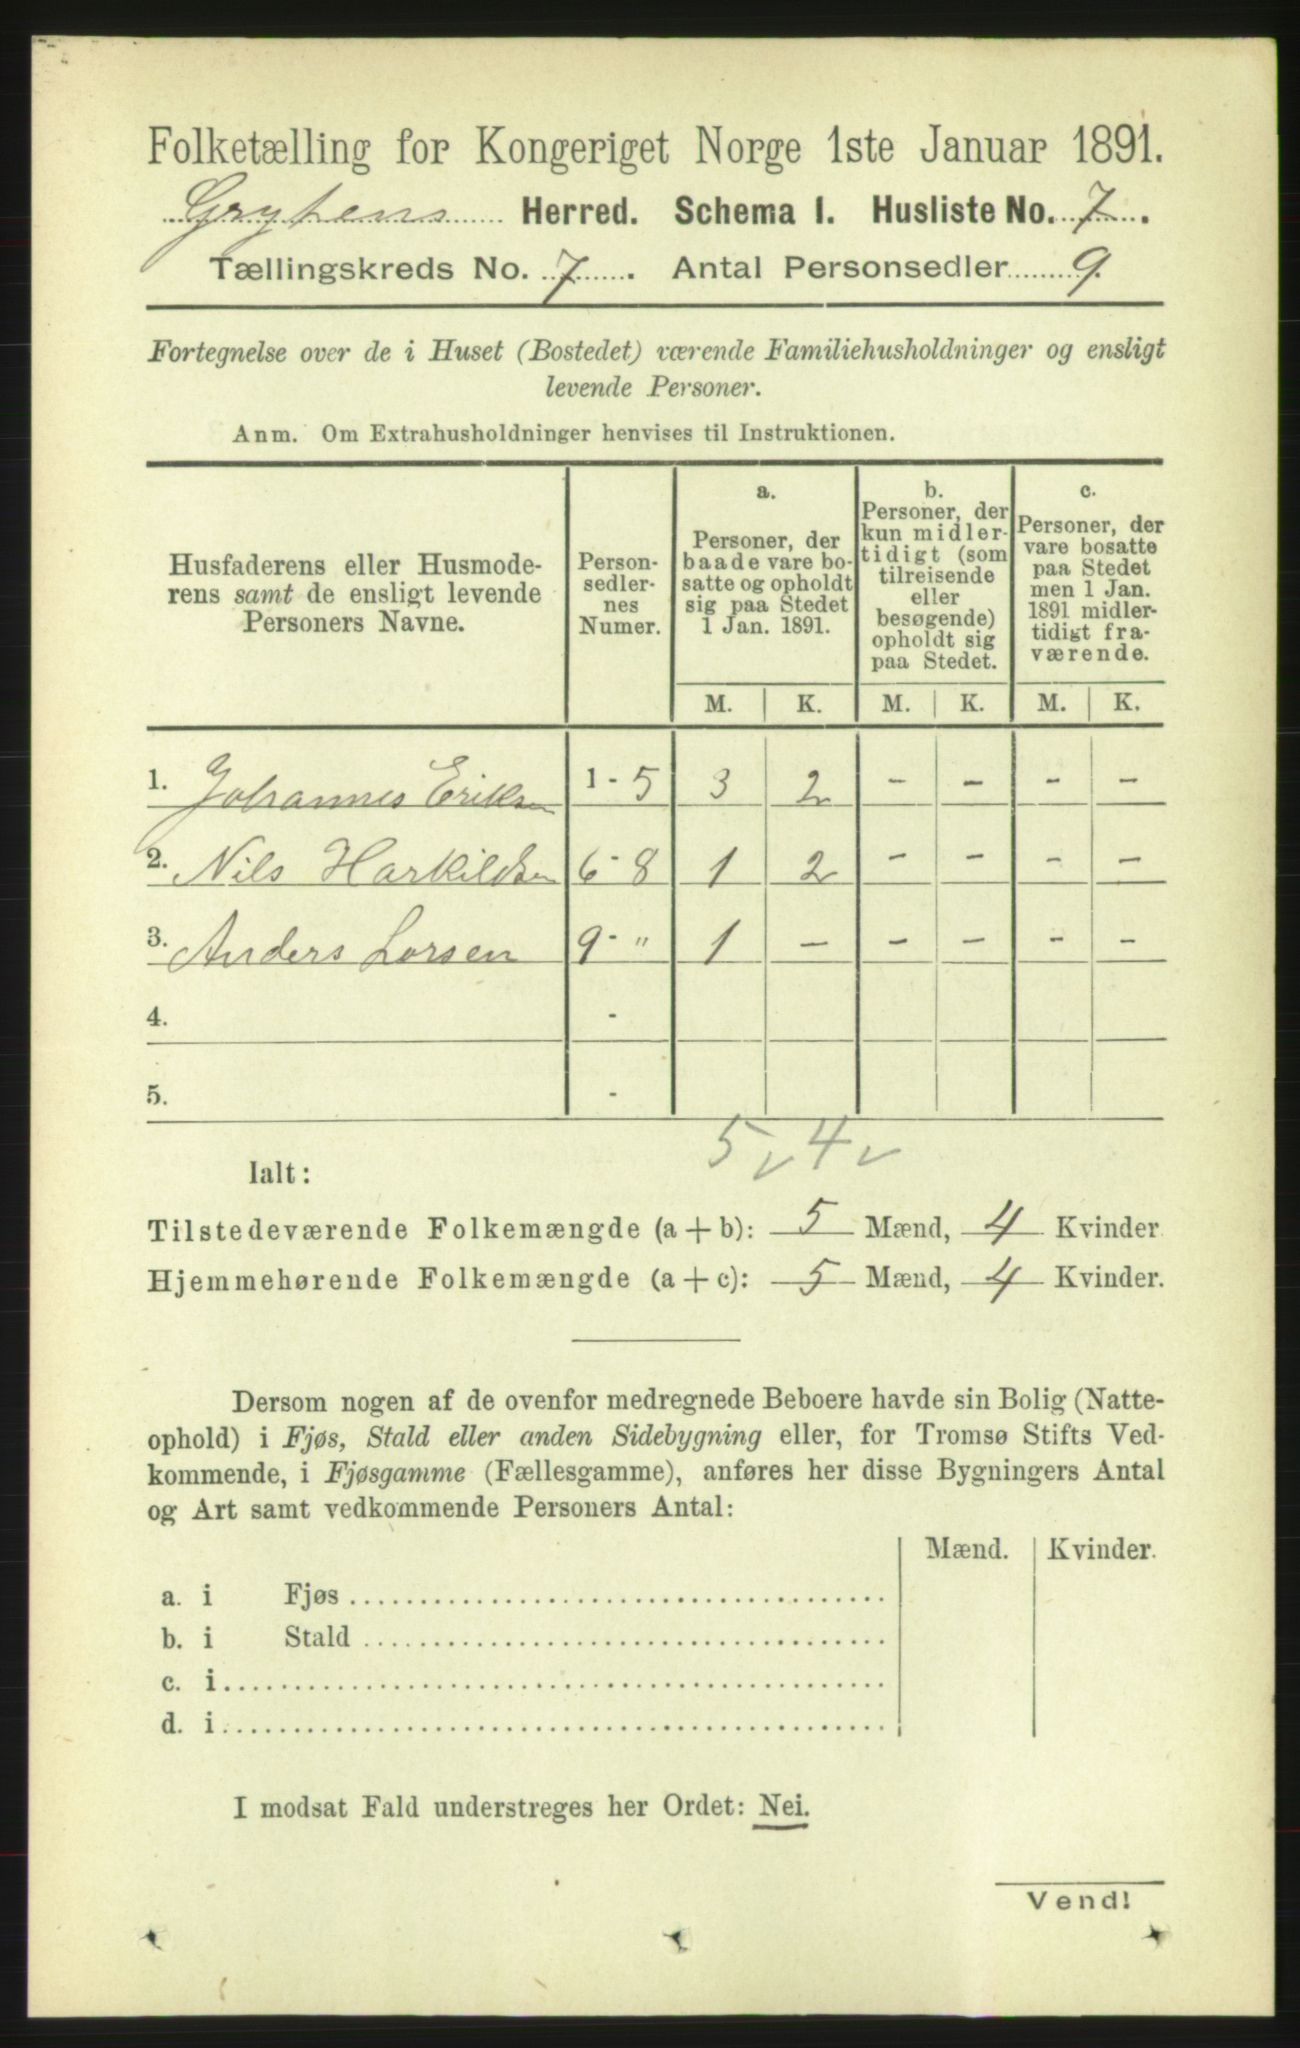 Folketælling for Kongeriget Norge 1ste Januar 1891.
Grytens Herred. Schema I. Husliste No. 7.
Tællingskreds No. 7. Antal Personsedler 9.
Fortegnelse over de i Huset (Bostedet) værende Familiehusholdninger og ensligt
levende Personer.
Anm. Om Extrahusholdninger henvises til Instruktionen.
Husfaderens eller Husmode-
rens samt de ensligt levende
Personers Navne.
Person-
sedler-
nes
Numer.
a.
Personer, der
baade vare bo-
satte og opholdt
sig paa Stedet
1 Jan. 1891.
b.
Personer, der
kun midler-
tidigt (som
tilreisende
eller
besøgende)
opholdt sig
paa Stedet.
c.
Personer, der
vare bosatte
paa Stedet
men 1 Jan.
1891 midler-
tidigt fra-
værende.
M. K. M. K. M. K.
1. Johannes Eriksen 1 - 5 3 2 - - - -
2. Nils Harkildsen 6 - 8 1 2 - - - -
3. Anders Larsen 9 - " 1 - - - - -
4. -
5. -
5 v 4 v
Ialt:
Tilstedeværende Folkemængde (a + b): 5 Mænd, 4 Kvinder
Hjemmehørende Folkemængde (a + c): 5 Mænd, 4 Kvinder.
Dersom nogen af de ovenfor medregnede Beboere havde sin Bolig (Natte-
ophold) i Fjøs, Stald eller anden Sidebygning eller, for Tromsø Stifts Ved-
kommende, i Fjøsgamme (Fællesgamme), anføres her disse Bygningers Antal
og Art samt vedkommende Personers Antal:
Mænd. Kvinder.
a. i Fjøs
b. i Stald
c. i
d. i
I modsat Fald understreges her Ordet: Nei.
Vend!